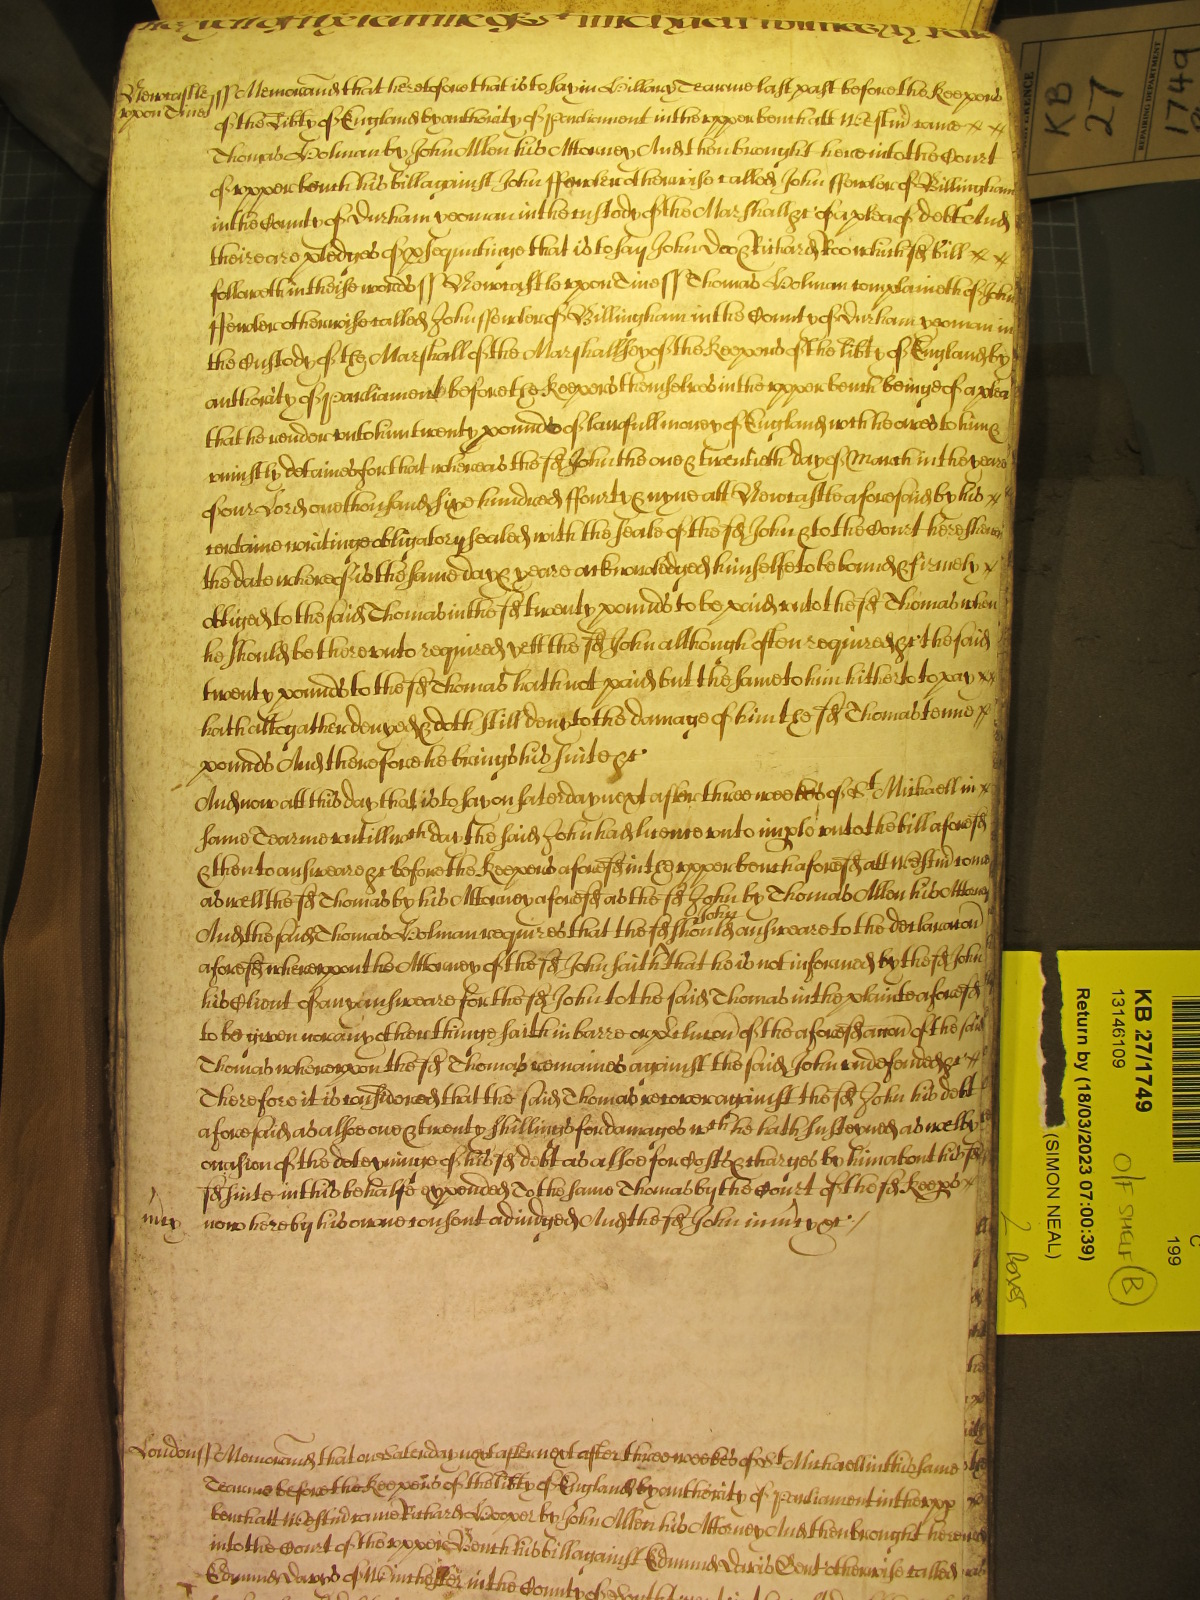 Newcastle
uppon Tine
ss Memorand that heretofore that is to say in Hillary Tearme last past before the Keepers
of the Libty of England by authority of Parliament in the upper bench att Westmr came x x
Thomas Holman by John Allen his Attorney And then brought here into the Court
of upper bench his bill against John ffewler otherwise called John ffewler of Billingham
in the County of Durham yeoman in the custody of the Marshall &c of a plea of debt And
theire are pledges of prosequutinge that is to say John Doe & Richard Roo which sd bill x x
followeth in theise words ss Newcastle uppon Tine ss Thomas Holman complaineth of John
ffewler otherwise called John ffewler of Billingham in the County of Durham yeoman in
the Custody of the Marshall of the Marshallsey of the Keepers of the libty of England by
authority of Parliament before the Keepers themselves in the upper bench beinge of a plea
that he render unto him twenty pounds of lawfull money of England wch he owes to him &
uniustly detaines for that whereas the sd John the one & twentieth day of March in the yeare
of our Lord one thousand sixe hundred ffourty & nyne att Newcastle aforesaid by his x
certaine writinge obligatory sealed with the seale of the sd John & to the Court here shewn
the date whereof is the same day & yeare acknowledged himselfe to be bound & firmely x
obliged to the said Thomas in the sd twenty pounds to be paid unto the sd Thomas when
he should be thereunto required yett the sd John although often required &c the said
twenty pounds to the sd Thomas hath not paid but the same to him hitherto to pay x
hath altogather denyed & doth still deny to the damage of him the sd Thomas tenne x
pounds And therefore he brings his suite &c
And now att this day that is to say on saterday next after three weekes of St Michaell in x
same Tearme untill wch day the said John had licence unto imple unto the bill aforesd
& then to answeare &c before the Keepers aforesd in the upper bench aforesd att Westmr come
as well the sd Thomas by his Attorney aforesd as the sd John by Thomas Allen his Attorney
And the said Thomas Holman requires that the sd John should answeare to the declaracon
aforesd whereuppon the Attorney of the sd John saith that he is not informed by the sd John
his Client of any answeare for the sd John to the said Thomas in the plainte aforesd
to be given nor any other thinge saith in barre or preclucon of the aforesd accon of the said
Thomas whereuppon the sd Thomas remaines against the said John undefended &c x
Therefore it is considered that the said Thomas recover against the sd John his debt
aforesaid as alsoe one & twenty shillings for damages wch he hath susteyned as well by
occasion of the deteyninge of his sd debt as alsoe for Costs & charges by him about his sd
sd suite in this behalfe expended To the same Thomas by the Court of the sd Keeps x
mcy now here by his owne consent adiudged And the sd John in mcy &c /
London ss Memorand that on Saterday next after next after three weekes of St Michaell in this same
Tearme before the Keepers of the libty of England by authority of Parliament in the upp
bench att Westmr came Richard Hooper by John Allen his Attorney And then brought here
into the Court of the upper Bench his bill against Edmund Davis Gent otherwise called
Edmund Davys of Winchester in the County of
KB
27
1749
REPAIRING DEPARTMENT
KB 27/1749
13146109
Return by (18/03/2023 07:00:39)
(SIMON NEAL)
O/F SHELF B
2 boxes
C
199